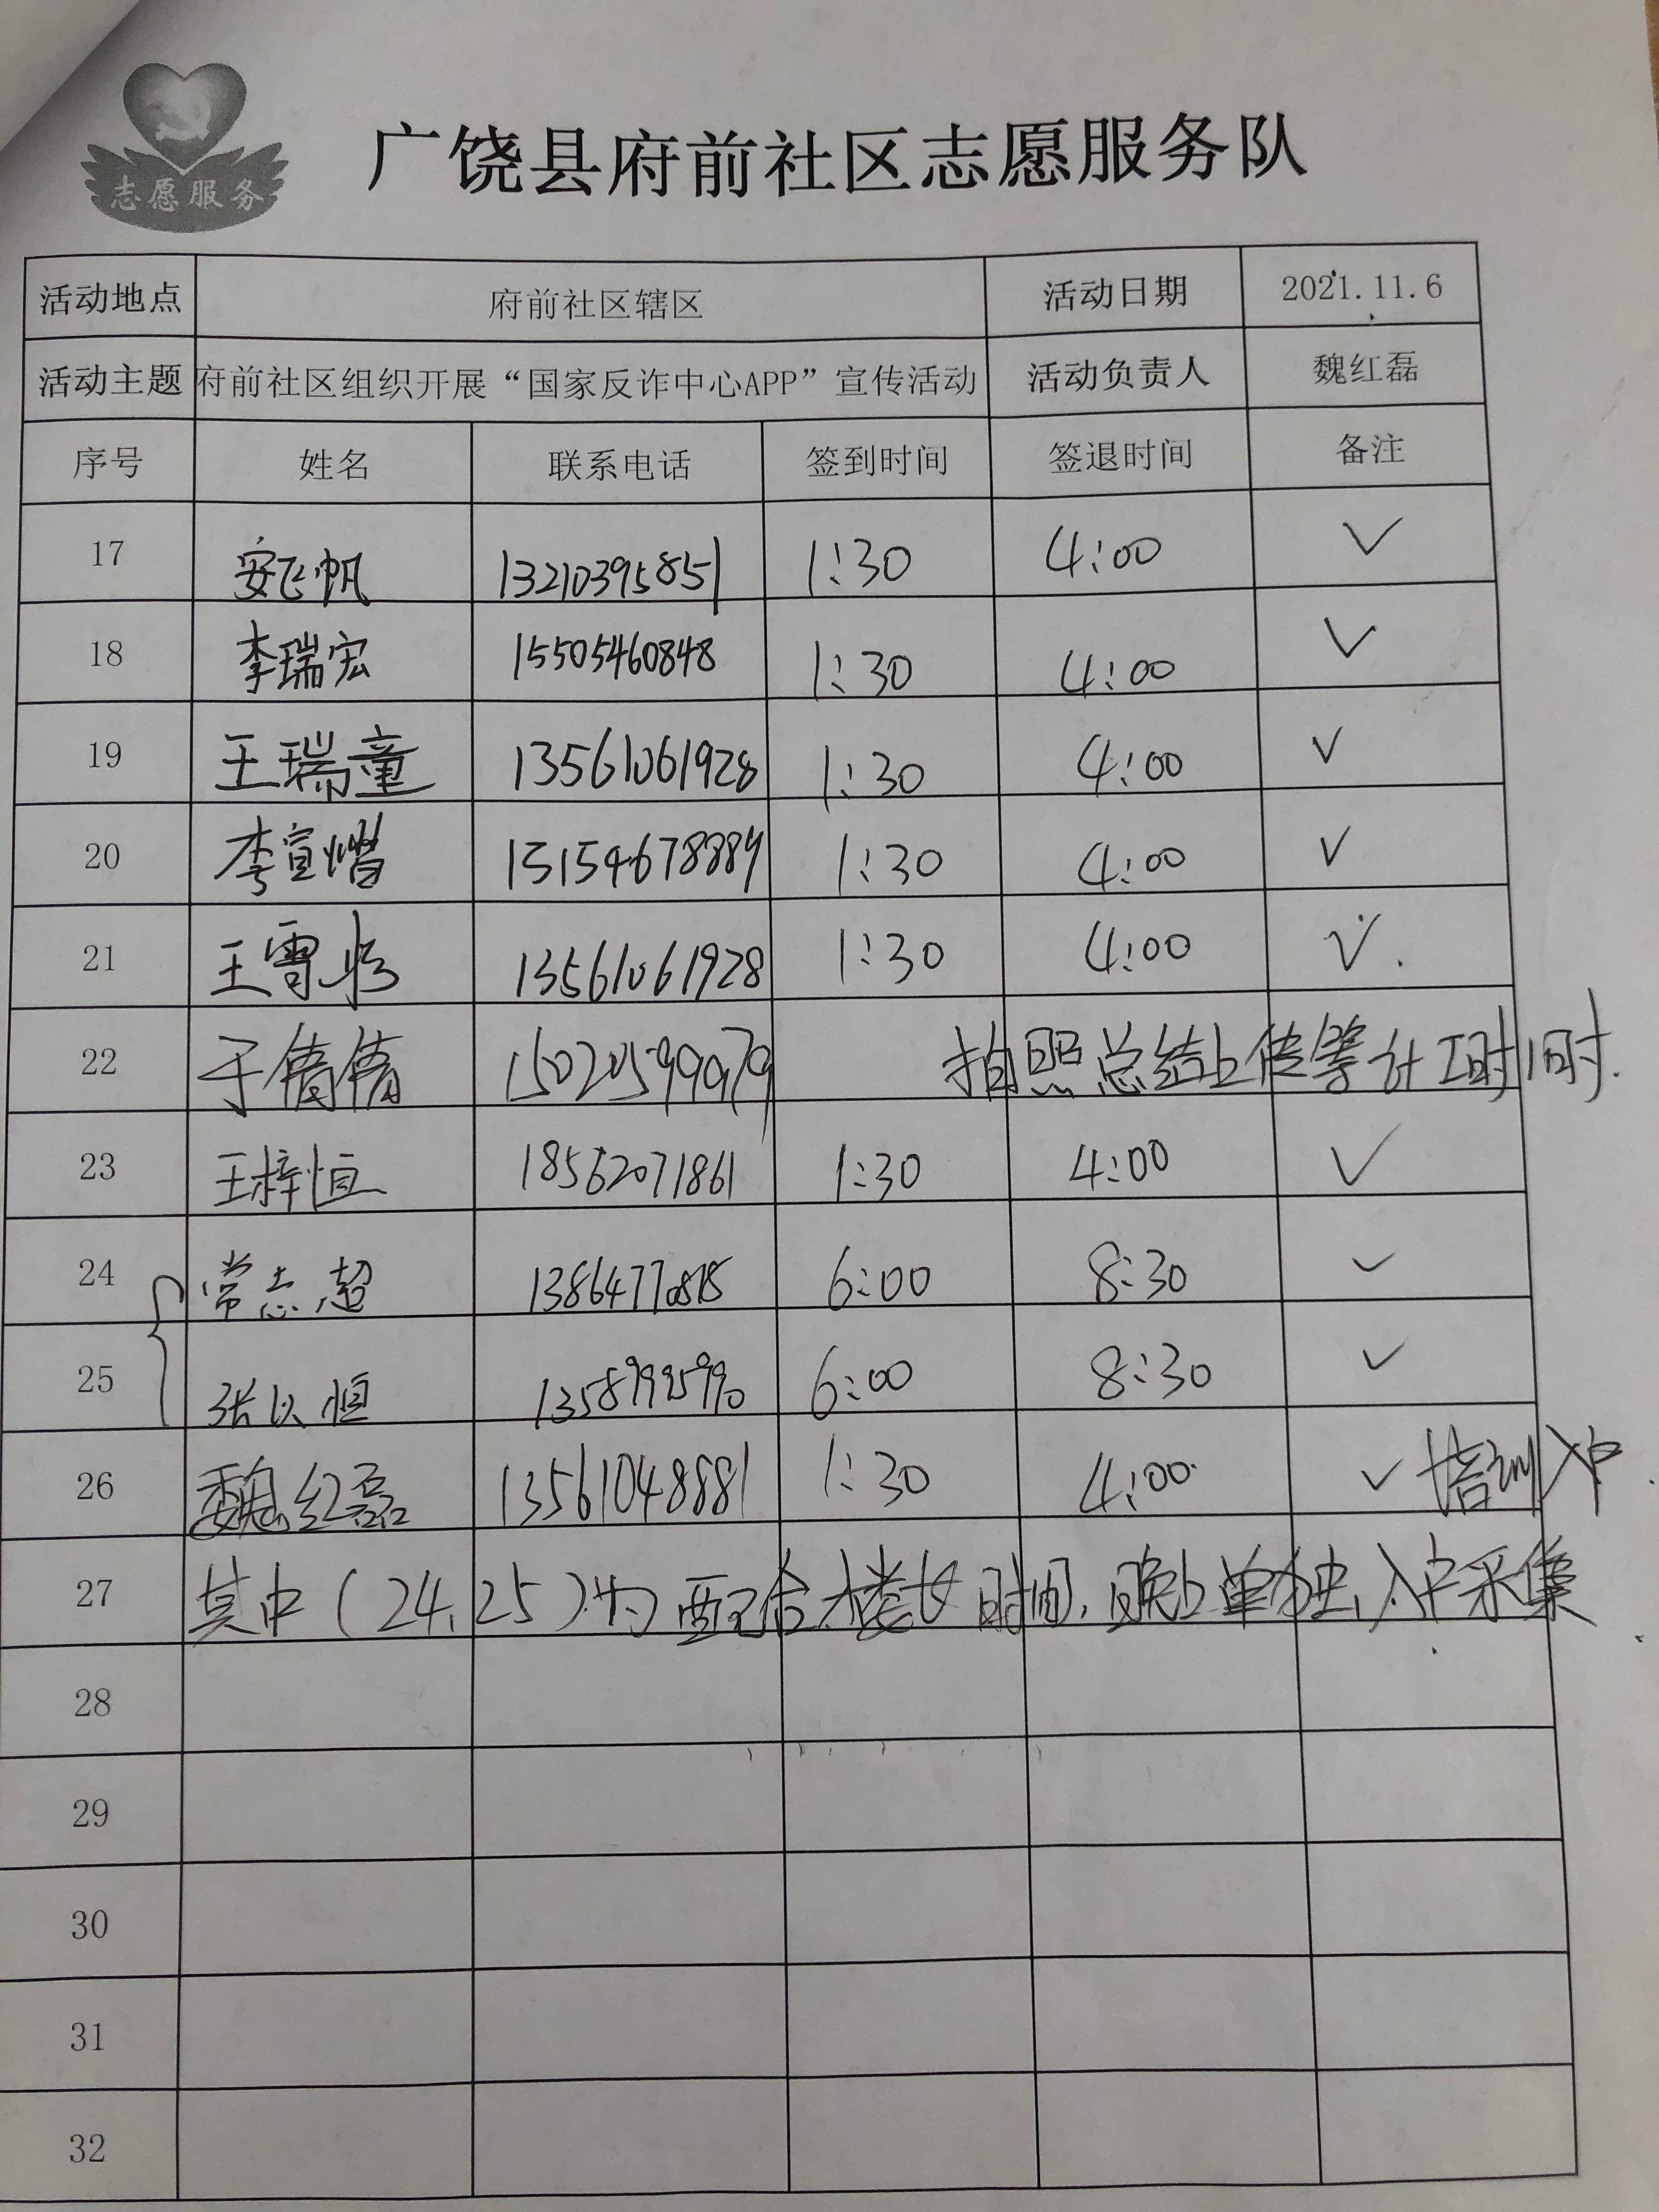 志愿服务
广饶县府前社区志愿服务队
活动地点 府前社区辖区 活动日期 2021.11.6
活动主题 府前社区组织开展“国家反诈中心APP”宣传活动 活动负责人 魏红磊
序号 姓名 联系电话 签到时间 签退时间 备注
17 安飞帆 13210395851 1:30 4:00 ✓
18 李瑞宏 15505460848 1:30 4:00 ✓
19 王瑞童 13561061928 1:30 4:00 ✓
20 李宣熠 1:30 4:00 ✓
21 13561061928 1:30 4:00 ✓
22 于倩倩 15020599979 拍照总结上传等计工时1时.
23 王梓恒 18562071861 1:30 4:00 ✓
24 常志超 6:00 8:30 ✓
25 张以恒 6:00 8:30 ✓
26 魏红磊 13561048881 1:30 4:00 ✓ 培训入户
27 其中(24、25)为配合楼长时间,晚上单独入户采集
28
29
30
31
32